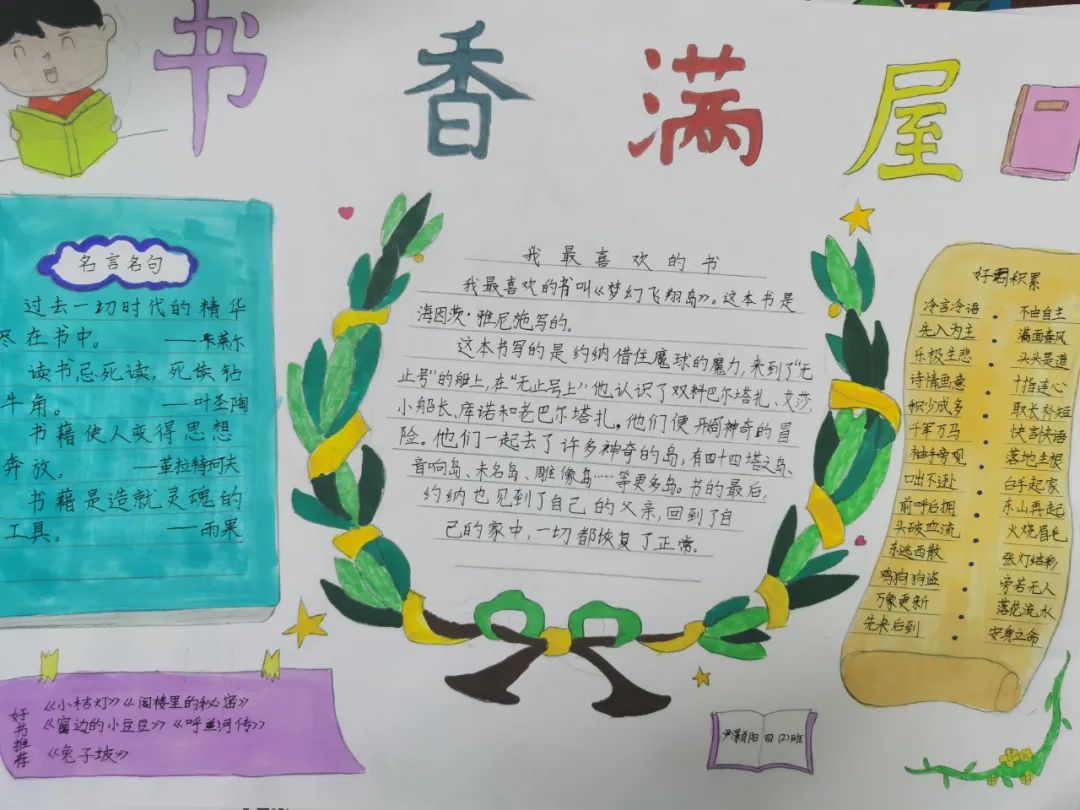 书香满屋
名言名句
过去一切时代的精华
尽在书中。
——卡莱尔
读书忌死读，死读钻
牛角。
——叶圣陶
书籍使人变得思想
奔放。
——革拉特珂夫
书籍是造就灵魂的
工具。
——雨果
我最喜欢的书
我最喜欢的书叫《梦幻飞翔岛》。这本书是
海因茨·雅尼施写的。
这本书写的是约纳借住魔球的魔力，来到了“无
止号”的船上，在“无止号上”他认识了双料巴尔塔扎、艾莎、
小船长、库诺和老巴尔塔扎。他们便开启神奇的冒
险。他们一起去了许多神奇的岛，有四十四塔之岛、
音响岛、未名岛、雕像岛……等更多岛。书的最后，
约纳也见到了自己的父亲，回到了自
己的家中，一切都恢复了正常。
好词积累
冷言冷语 · 不由自主
先入为主 · 满面春风
乐极生悲 · 头头是道
诗情画意 · 十指连心
积少成多 · 取长补短
千军万马 · 快言快语
袖手旁观 · 落地生根
口出不逊 · 白手起家
前呼后拥 · 东山再起
头破血流 · 火烧眉毛
东逃西散 · 张灯结彩
鸡狗狗盗 · 旁若无人
万象更新 · 落花流水
先来后到 · 安身立命
好书推荐
《小桔灯》《阁楼里的秘密》
《窗边的小豆豆》《呼兰河传》
《兔子坡》
四(2)班